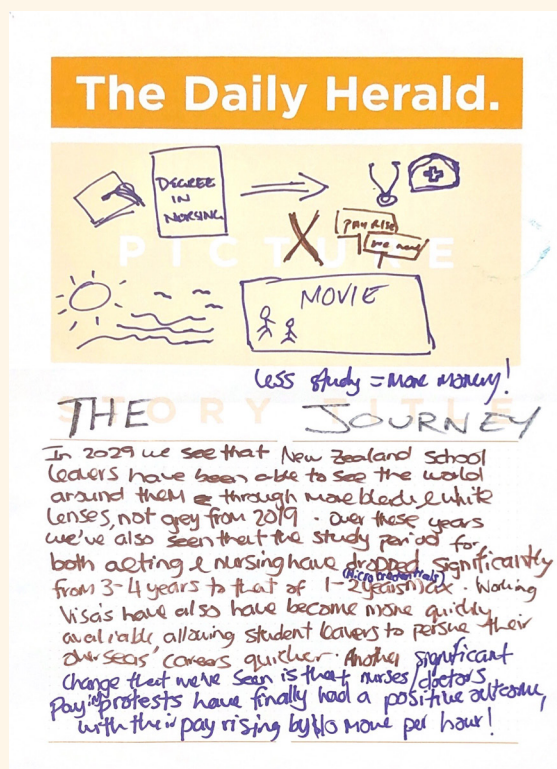 The Daily Herald.
DEGREE
IN
NURSING
PICTURE
PAY RISE
MOVIE
less study = more money!
STORY TITLE
THE JOURNEY
In 2029 we see that New Zealand school
leavers have been able to see the world
around them through more black & white
lenses, not grey from 2019. Over these years
we've also seen that the study period for
both acting & nursing have dropped significantly
(Micro credentials)
from 3-4 years to that of 1-2 years max. Working
Visa's have also have become more quickly
available allowing student leavers to persue their
overseas' careers quicker. Another significant
change that we've seen is that nurses/doctors
Pay protests have finally had a positive outcome,
with their pay rising by $10 more per hour!